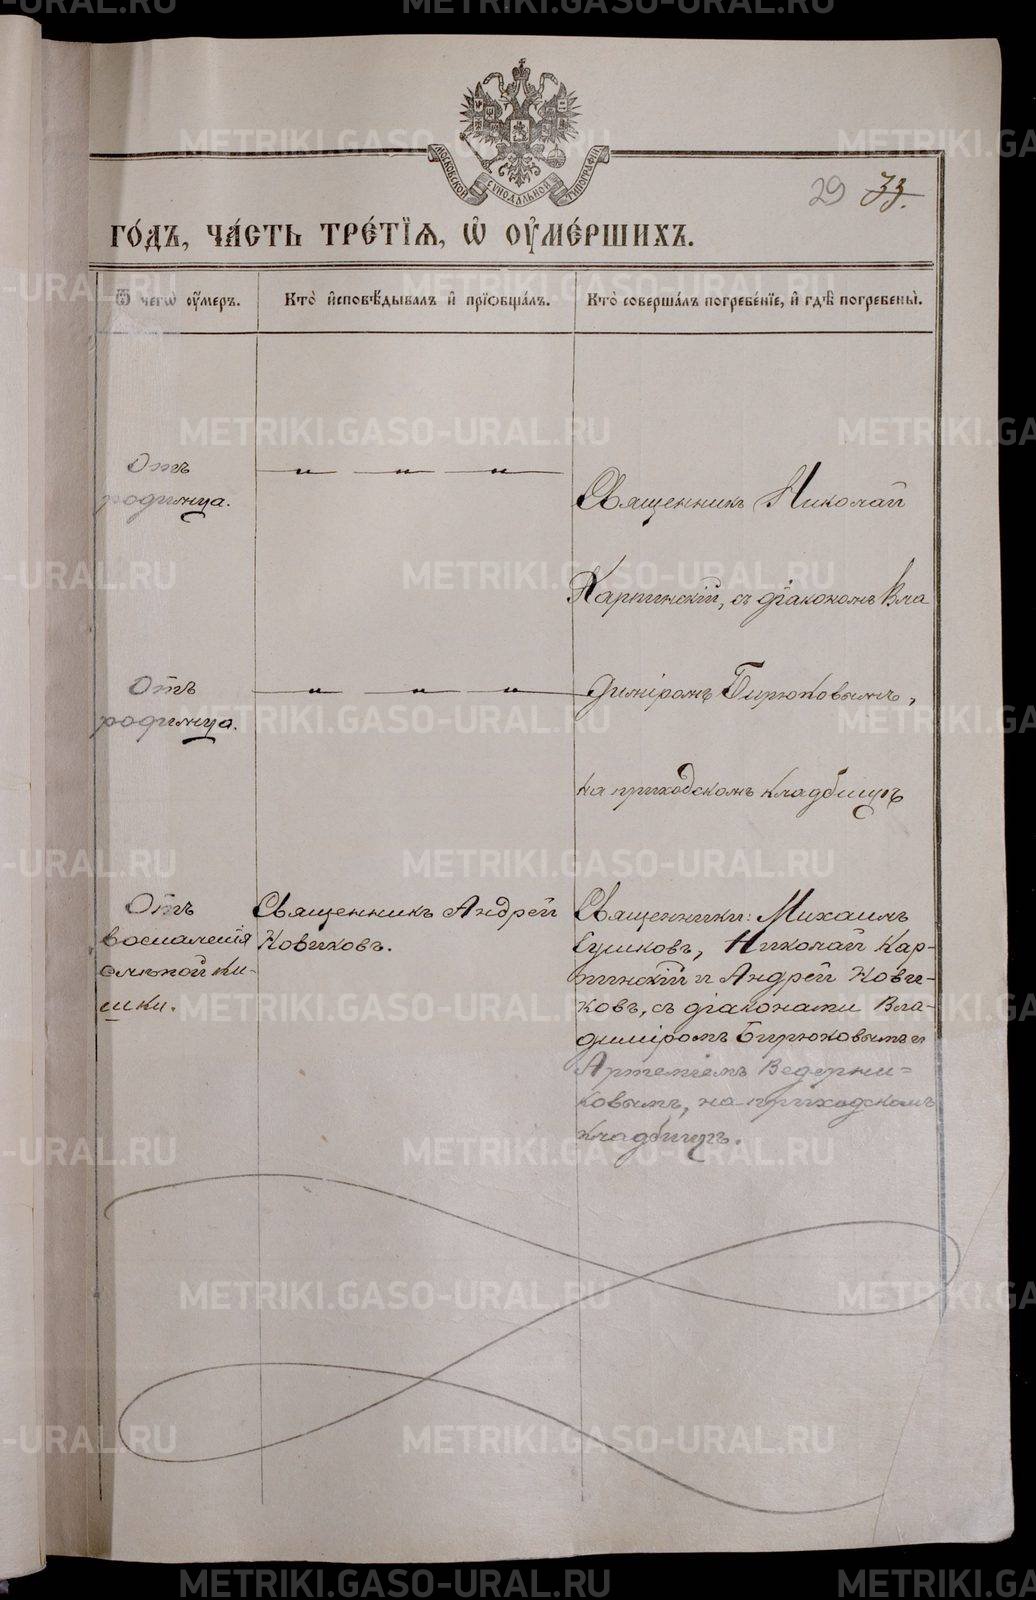 МОСКОВСКОЙ СѴНОДАЛЬНОЙ ТИПОГРАФІИ
29 33.
го́дъ, ча́сть тре́тїѧ, ѡ҆ оу҆ме́ршихъ.
Ѿ чегѡ̀ оу҆́меръ.
Кто̀ и҆сповѣ́дывалъ и҆ прїѡбща́лъ.
Кто̀ соверша́лъ погребе́нїе, и҆ гдѣ̀ погребены̀.
Отъ
родимца.
Священникъ Николай
Карпинскій, съ діакономъ Вла
диміромъ Бирюковымъ,
на приходскомъ кладбищѣ
Отъ
родимца.
Отъ
воспаленія
слѣпой ки-
шки.
Священникъ Андрей
Новиковъ.
Священники: Михаилъ
Сушковъ, Николай Кар-
пинскій и Андрей Нови-
ковъ, съ діаконами Вла-
диміромъ Бирюковымъ и
Артеміемъ Ведерни-
ковымъ, на приходскомъ
кладбищѣ.
METRIKI.GASO-URAL.RU